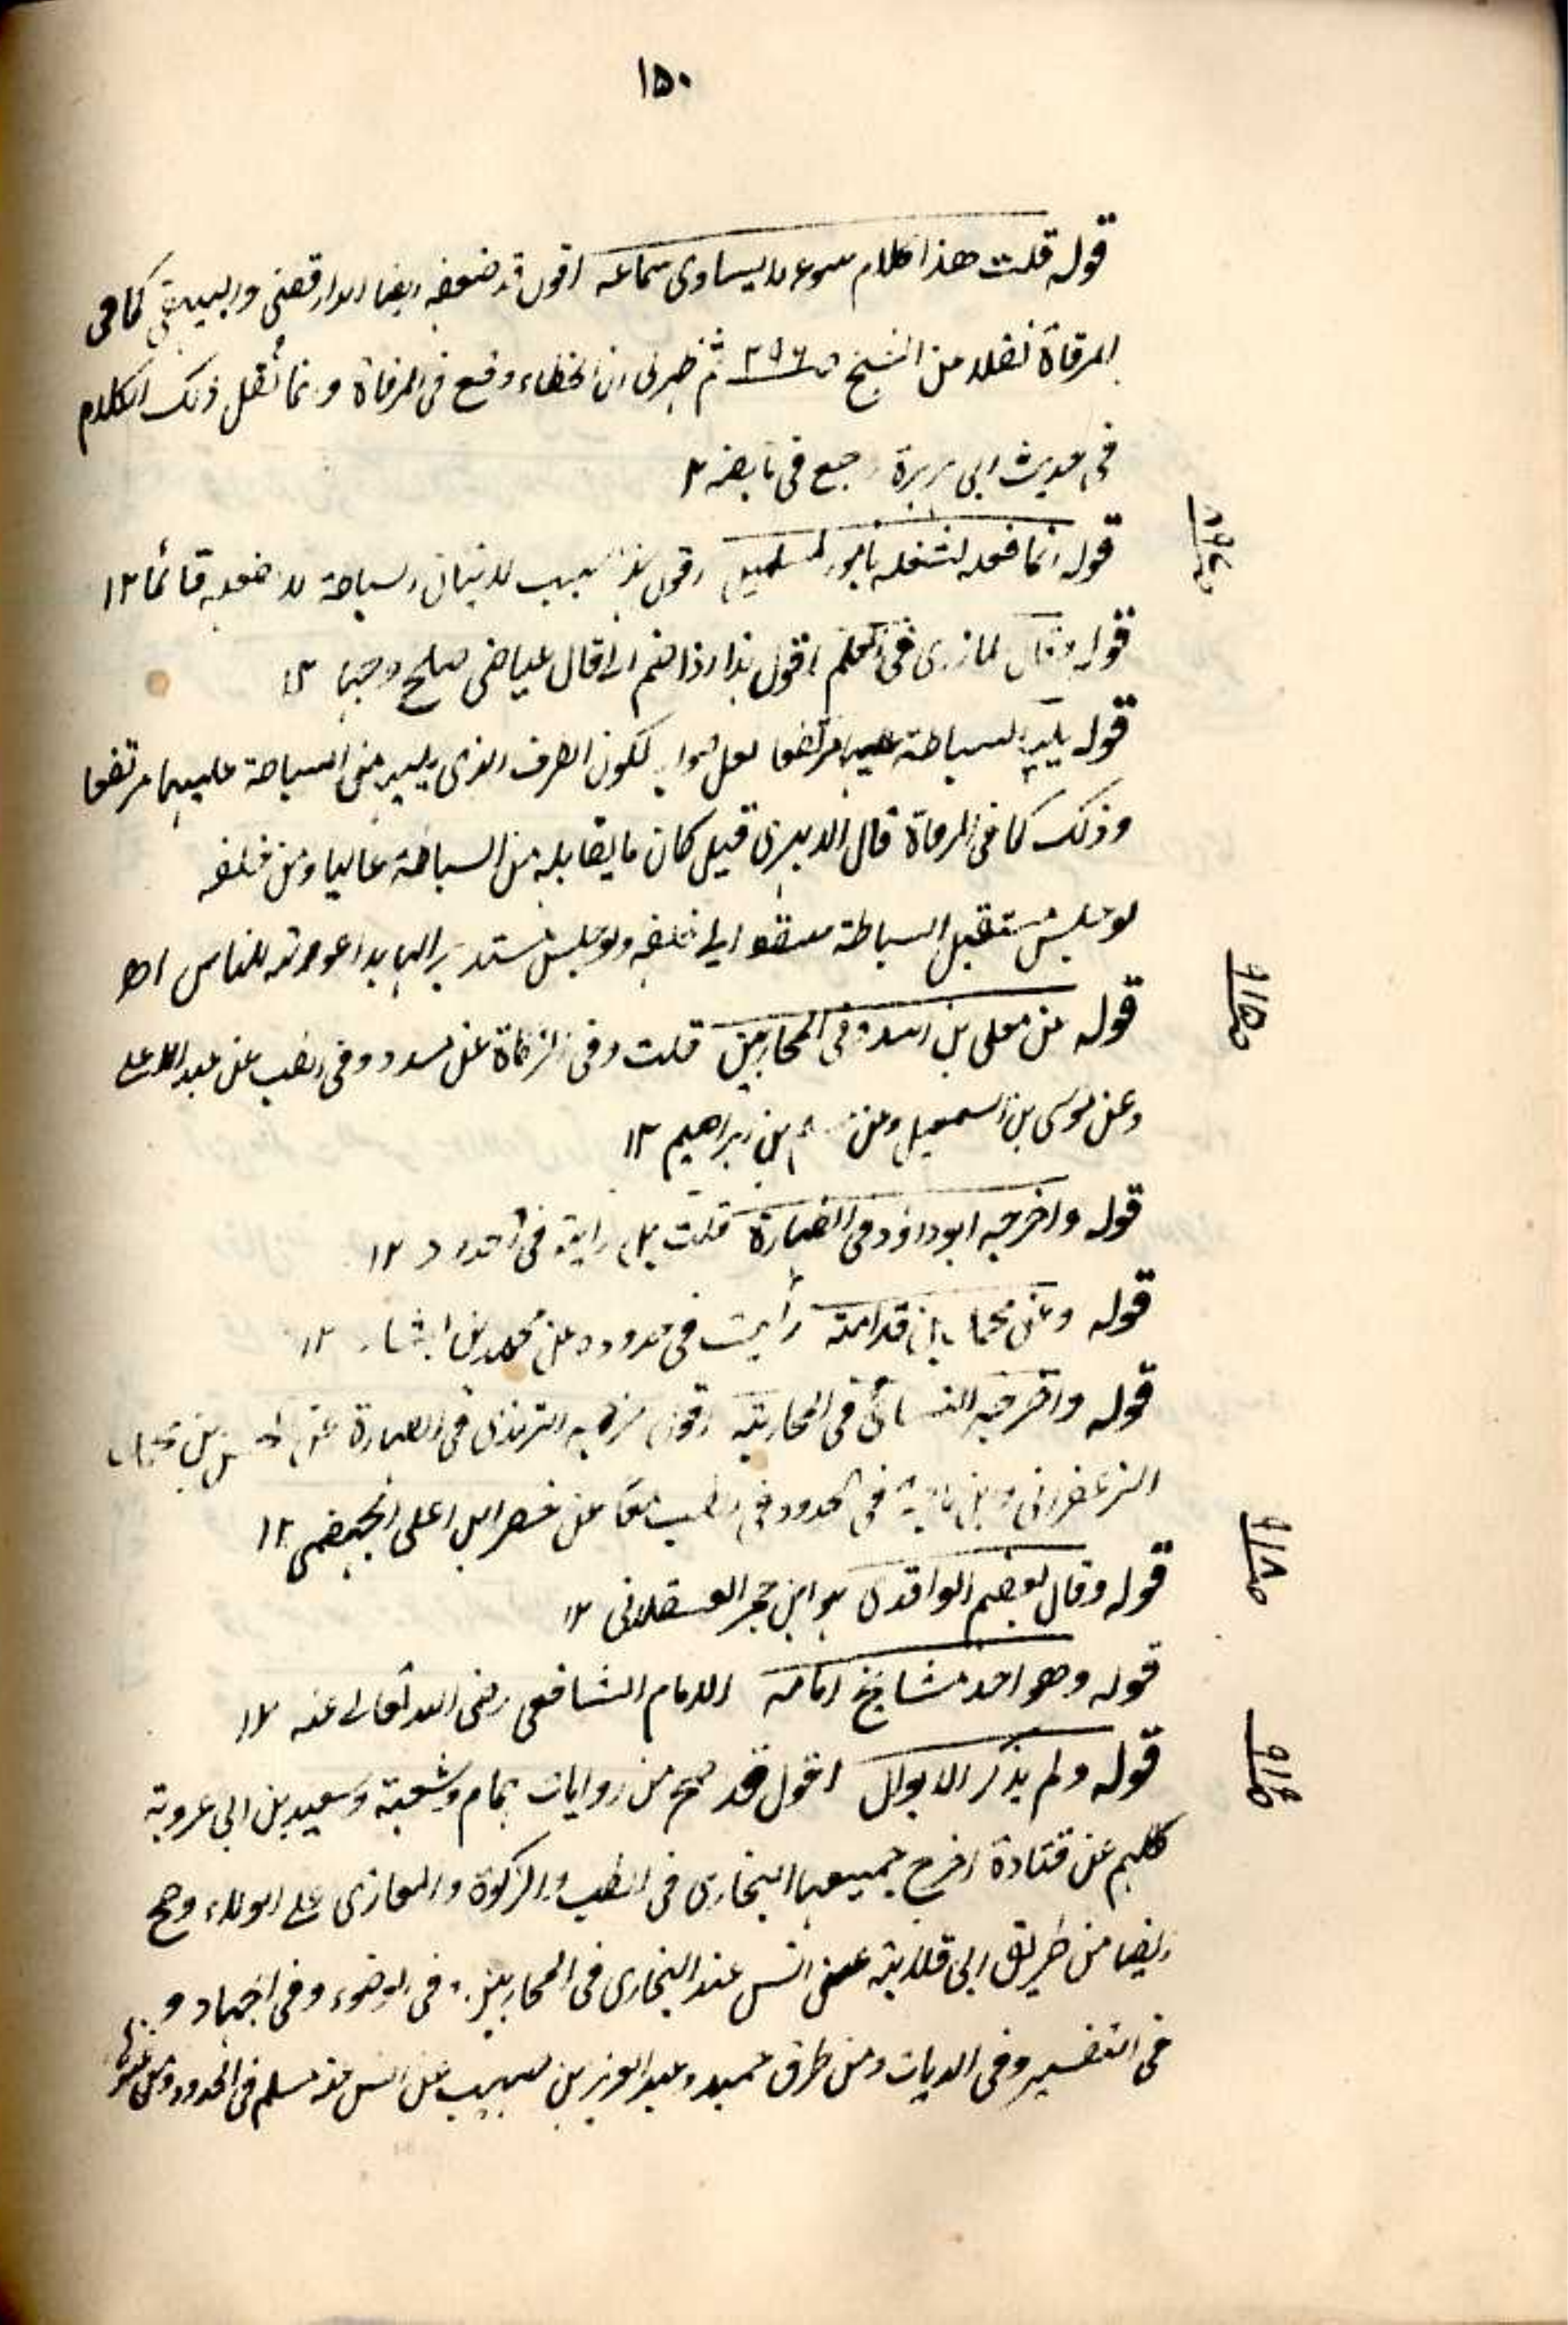 ١٥٠
قوله قلت هذا كلام سوء لا يساوى سماعه اقول قد ضعفه ايضا الدارقطنى والبيهقى كما فى
المرقاة نقلا من الشيخ ص ٣٩٦ ثم ظهر لى ان الخطاء وقع فى المرقاة وانما نقل ذلك الكلام
فى حديث ابى هريرة راجع
قوله انما فعله لشغله بامور المسلمين اقول هذا سبب لاتيان السباطة لا ضعله قائما ١٢
قوله وقال المازرى فى المعلم اقول هذا اذا ضم الى ما قال عياض صلح وجها ١٢
قوله يليه السباطة عليها مرتفعا لعل صوابه لكون الطرف الذى يليه من السباطة عليها مرتفعا
وذلك كما فى المرقاة قال الابهرى قيل كان ما يقابله من السباطة عاليا ومن خلفه
لو جلس مستقبل السباطة سقط الى خلفه ولو جلس مستدبرا لها بدا عورته للناس اھ
قوله عن معلى بن اسد فى المحاربين قلت وفى الزكاة عن مسدد وفى الطب عن عبد الاعلى
وعن موسى بن اسمعيل وعن مسلم بن ابراهيم ١٢
قوله واخرجه ابوداؤد فى الطهارة قلت بل رايته فى الحدود ١٢
قوله وعن محمد بن قدامة رأيت فى حدوده عن محمد بن بشار ١٢
قوله واخرجه النسائى فى المحاربة اقول اخرجه الترمذى فى الطهارة عن الحسن بن محمد
الزعفرانى وابن ماجة فى الحدود فى الطب معا عن نصر ابن على الجهضمى ١٢
قوله وقال بعضهم الواقدى هو ابن حجر العسقلانى ١٢
قوله وهو احد مشايخ امامه الامام الشافعى رضى الله تعالى عنه ١٢
قوله ولم يذكر الابوال اقول قد صح من روايات همام وشعبة وسعيد بن ابى عروبة
كلهم عن قتادة اخرج جميعها البخارى فى الطب والزكوة والمغازى على الولاء وصح
ايضا من طريق ابى قلابة عن انس عند البخارى فى المحاربين وفى الوضوء وفى الجهاد و
فى التفسير وفى الديات ومن طرق حميد وعبد العزيز بن صهيب عن انس عند مسلم فى الحدود
ص ٩١٥
ص ٩١٨
ص ٩١٩